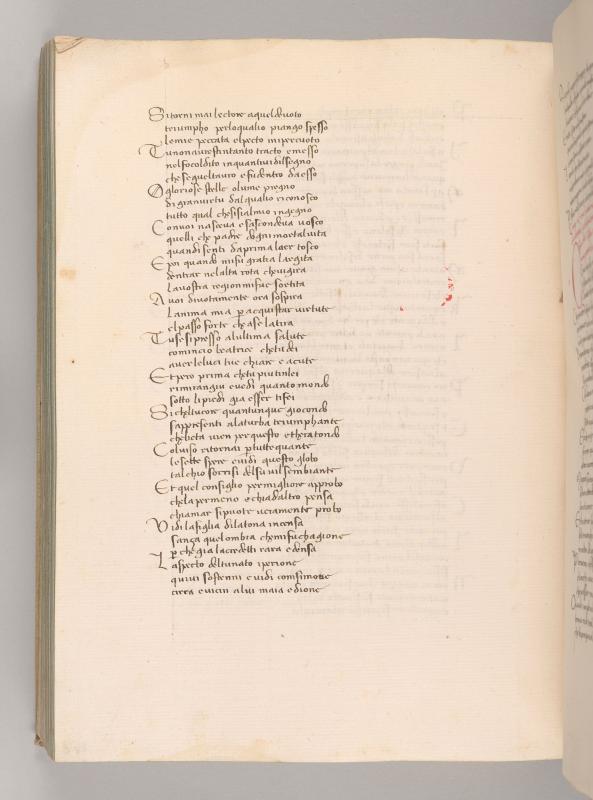 Si torni mai lectore aquel devoto
triumpho perloqualio piango spesso
lemie peccata elpecto mi percuoto
Tu non auresti intanto tracto e messo
nel foco ldito inquantui dissegno
che segueltauro e fu dentro da esso
O gloriose stelle o lume pregno
di gran virtu dalqualio riconosco
tutto qual chesisia lmio ingegno
Con voi nasceva e sascondeva vosco
quelli che padre dogni mortal vita
quandi senti da prima laer tosco
E poi quando mi fu gratia largita
dentrar nelalta rota chevigira
la vostra region mi fue sortita
A voi divotamente ora sospira
Lanima mia p acquistar virtute
el passo forte che a se latira
Tu se si presso alultima salute
comincio beatrice chetu dei
aver leluci tue chiare e acute
Et pero prima chetu piu tinlei
rimira ngiu e vedi quanto mondo
sotto li piedi gia esser ti fei
Si cheltucore quantunque giocondo
sappresenti alaturba triumphante
che lieta vien per questo ethera tondo
Col viso ritornai p tutte quante
le sette spere e vidi questo globo
tal chio sorrisi del su vil sembiante
Et quel consiglio per migliore approbo
chela per meno e chi ad altro pensa
chiamar si puote veramente probo
Vidi la figlia di latona incensa
sança quelombra chemi fu chagione
p che gia lacredetti rara e densa
Laspecto deltunato iperione
quivi sostenni e vidi comsi move
circa e vicin a lui maia e dione